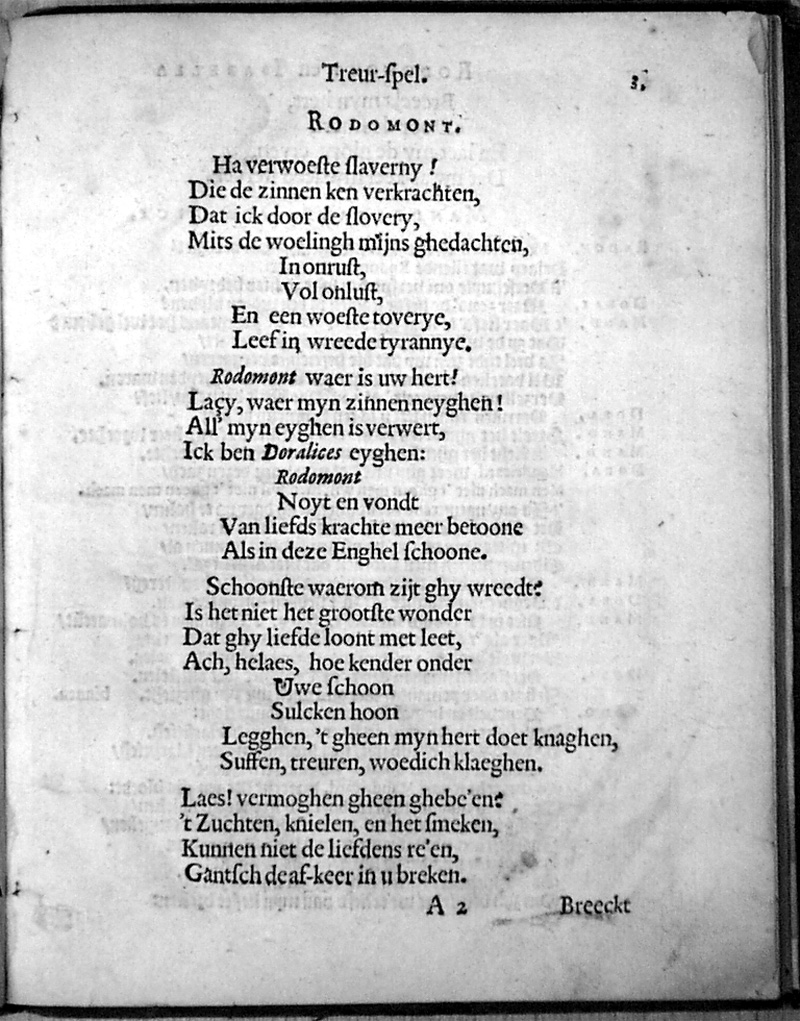 Treur-spel. 3.
RODOMONT.
Ha verwoeste slaverny!
Die de zinnen ken verkrachten,
Dat ick door de slovery,
Mits de woelingh mijns ghedachten,
In onrust,
Vol onlust,
En een woeste toverye,
Leef in wreede tyrannye.
Rodomont waer is uw hert!
Laçy, waer myn zinnen neyghen!
All' myn eyghen is verwert,
Ick ben Doralices eyghen:
Rodomont
Noyt en vondt
Van liefds krachte meer betoone
Als in deze Enghel schoone.
Schoonste waerom zijt ghy wreedt?
Is het niet het grootste wonder
Dat ghy liefde loont met leet,
Ach, helaes, hoe kender onder
Uwe schoon
Sulcken hoon
Legghen, 't gheen myn hert doet knaghen,
Suffen, treuren, woedich klaeghen.
Laes! vermoghen gheen ghebe'en?
't Zuchten, knielen, en het smeken,
Kunnen niet de liefdens re'en,
Gantsch de af-keer in u breken.
A 2 Breeckt